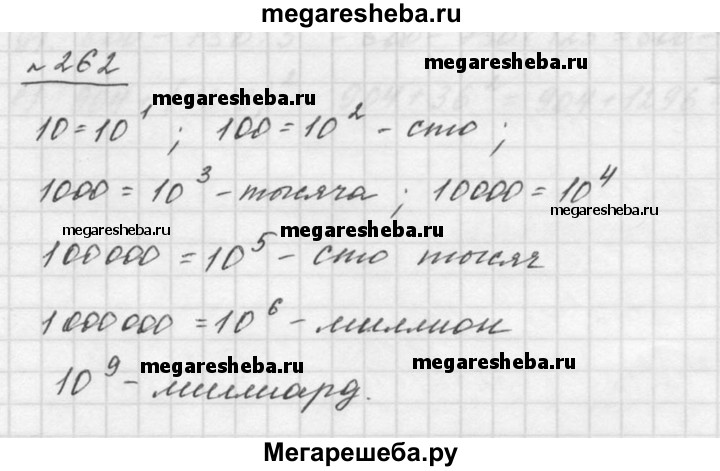 megaresheba.ru
№ 262
megaresheba.ru
megaresheba.ru
10 = 10¹ ; 100 = 10² - сто ;
1000 = 10³ - тысяча ; 10000 = 10⁴
megaresheba.ru
megaresheba.ru
megaresheba.ru
100000 = 10⁵ - сто тысяч
1000000 = 10⁶ - миллион
megaresheba.ru
megaresheba.ru
10⁹ - миллиард.
Мегарешеба.ру